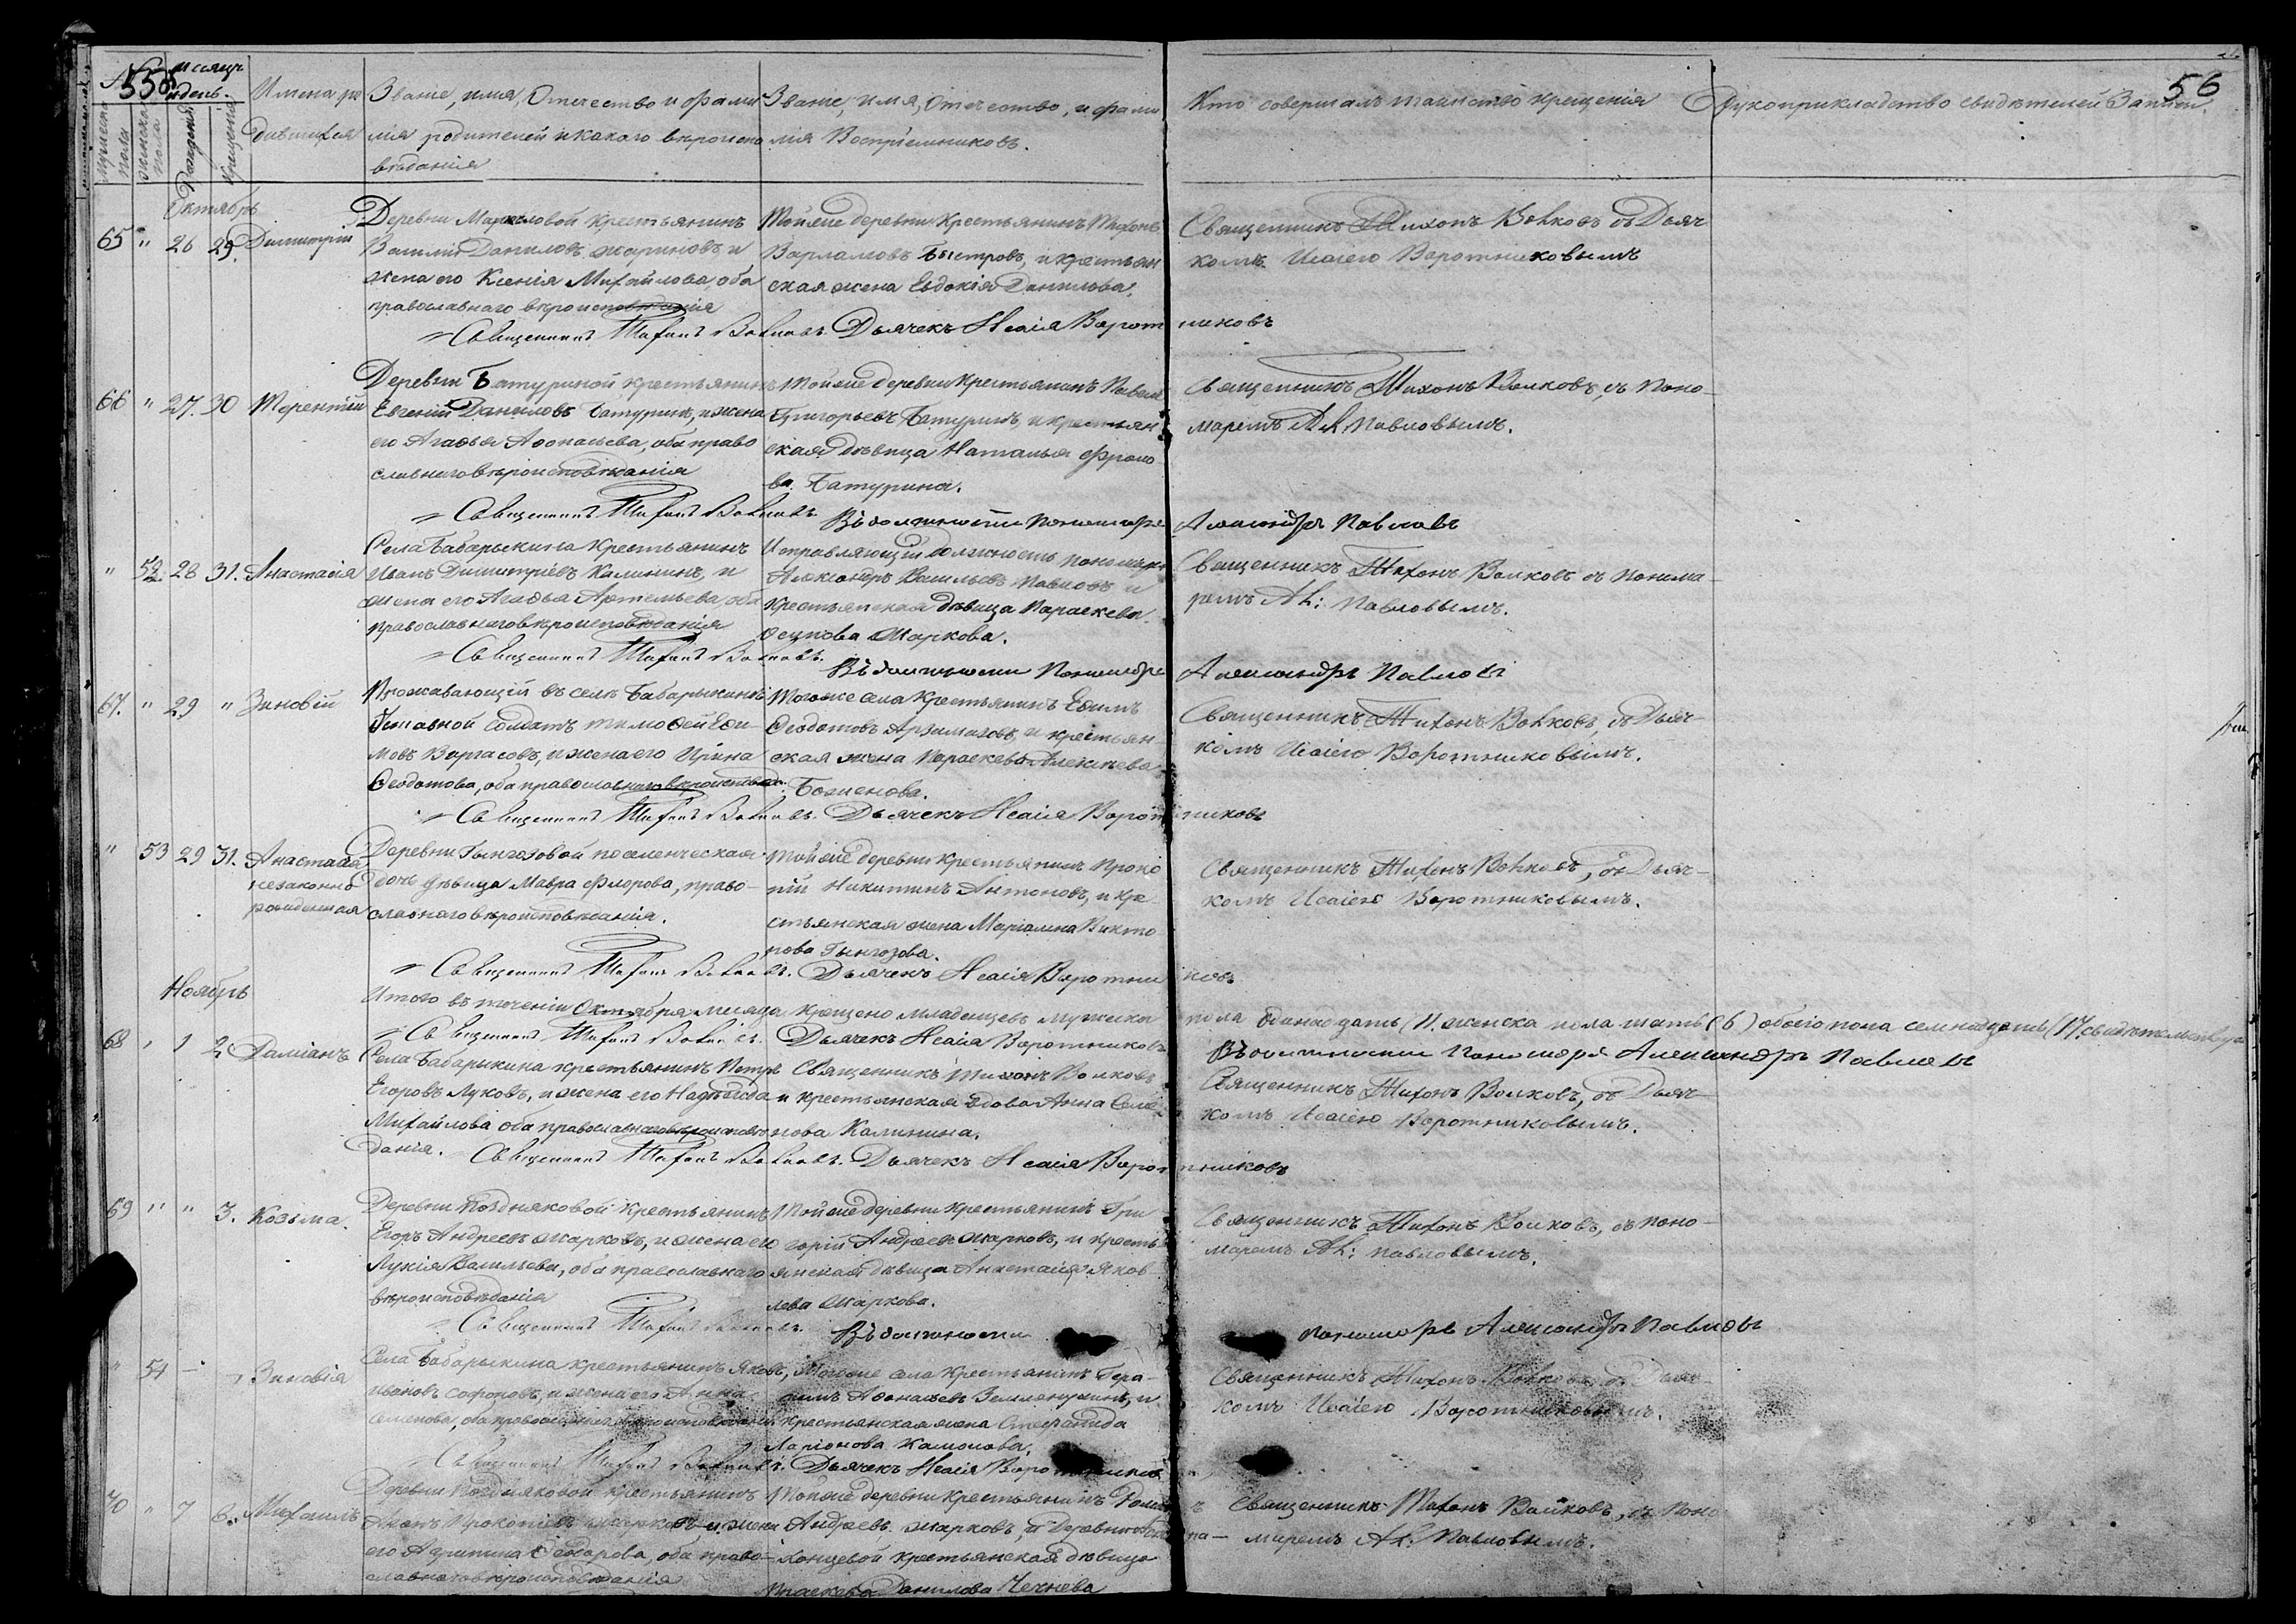 556
56
мѣсяцъ и день.
мужеска пола
женска пола
Рожденія
Крещенія
Имена ро
дившихся
Званіе, имя, Отечество и фами
лія родителей и какого вѣроиспо
вѣданія
Званіе, имя, отечество, и фами
лія Воспріемниковъ.
Кто совершалъ таинство крещенія
Рукоприкладство свидѣтелей
Октябрь
65 " 26 29. Димитрій
Деревни Маркеловой крестьянинъ
Василій Даниловъ Жариновъ, и
жена его Ксенія Михайлова, оба
православнаго вѣроисповѣданія
Тойже деревни Крестьянинъ Тихонъ
Варламовъ Быстровъ, и крестьян
ская жена Евдокія Данилова.
Священникъ Тихонъ Волковъ съ Дьяч
комъ Исаіею Воротниковымъ
Священникъ Тихонъ Волковъ. Дьячекъ Исаія Воротниковъ
66 " 27. 30 Терентій
Деревни Батуриной крестьянинъ
Евгеній Даниловъ Батуринъ, и жена
его Агаѳья Аѳонасьева, оба право
славнаго вѣроисповѣданія
Тойже деревни Крестьянинъ Павелъ
Григорьевъ Батуринъ, и крестьян
ская дѣвица Наталья Фроло
ва Батурина.
Священникъ Тихонъ Волковъ, съ Поно-
маремъ Ал. Павловымъ.
Священникъ Тихонъ Волковъ. Въ должности Пономаря Александръ Павловъ
" 52. 28 31. Анастасія
Села Бабарыкина Крестьянинъ
Иванъ Димитріевъ Калининъ, и
жена его Агаѳья Артемьева, оба
православнаго вѣроисповѣданія
Исправляющій должность пономаря
Александръ Васильевъ Павловъ и
крестьянская дѣвица Параскева
Осипова Маркова.
Священникъ Тихонъ Волковъ съ Понома-
ремъ Ал: Павловымъ.
Священникъ Тихонъ Волковъ. Въ должности Пономаря Александръ Павловъ
67. " 29 " Зиновій
Проживающій въ селѣ Бабарыкинѣ
солдатъ Тимоѳей Ефи-
мовъ Варгасовъ, и жена его Ирина
Ѳеодотова, оба православнаго вѣроисповѣд.
Тогоже села Крестьянинъ Ефимъ
Ѳеодотовъ Арзамазовъ, и крестьян-
ская жена Параскева Алексѣева
Баженова.
Священникъ Тихонъ Волковъ, съ Дьяч-
комъ Исаіею Воротниковымъ.
Священникъ Тихонъ Волковъ. Дьячекъ Исаія Воротниковъ
" 53 29 31. Анастасія
незаконно
рожденная
Деревни Гынгозовой поселенческая
дочь дѣвица Мавра Флорова, право-
славнаго вѣроисповѣданія.
Тойже деревни крестьянинъ Проко
пій Никитинъ Антоновъ, и кре-
стьянская жена Маріамна Викто
рова Гынгозова.
Священникъ Тихонъ Волковъ, съ Дьяч-
комъ Исаіею Воротниковымъ.
Священникъ Тихонъ Волковъ. Дьячекъ Исаія Воротниковъ
Итого въ теченіи Октября мѣсяца крещено младенцевъ мужеска пола одинадцать (11. женска пола шесть (6) обоего пола семнадцать (17.
Священникъ Тихонъ Волковъ. Дьячекъ Исаія Воротниковъ
Въ должности Пономаря Александръ Павловъ
Ноябрь
68 " 1 2 Даміанъ
Села Бабарыкина крестьянинъ Петръ
Егоровъ Луковъ, и жена его Надѣжда
Михайлова, оба православнаго вѣроисповѣ
данія.
Священникъ Тихонъ Волковъ
и крестьянская вдова Анна Семе
нова Калинина.
Священникъ Тихонъ Волковъ, съ Дьяч-
комъ Исаіею Воротниковымъ.
Священникъ Тихонъ Волковъ. Дьячекъ Исаія Воротниковъ
69 " " 3. Козьма.
Деревни Поздняковой крестьянинъ
Егоръ Андреевъ Жарковъ, и жена его
Лукія Васильева, оба православнаго
вѣроисповѣданія
Тойже деревни Крестьянинъ Гри
горій Андреевъ Жарковъ, и кресть
янская дѣвица Анастасія Яков
лева Жаркова.
Священникъ Тихонъ Волковъ, съ поно-
маремъ Ал: Павловымъ.
Священникъ Тихонъ Волковъ. Въ должности пономарь Александръ Павловъ
" 54 Зиновія
Села Бабарыкина крестьянинъ Яковъ
Ивановъ Софоновъ, и жена его Анна
Семенова, оба православнаго вѣроисповѣданія
Тогоже села Крестьянинъ Гера-
симъ Аѳонасьевъ, и
крестьянская жена Стефанида
Ларіонова
Священникъ Тихонъ Волковъ съ Дьяч-
комъ Исаіею Воротниковымъ.
Священникъ Тихонъ Волковъ. Дьячекъ Исаія Воротниковъ
70 " 7 8. Михаилъ
Деревни Поздняковой крестьянинъ
Прокопіевъ Жарковъ и жена
его Агрипина Ѳедорова, оба право-
славнаго вѣроисповѣданія
Тойже деревни Крестьянинъ
Андреевъ Жарковъ, и Деревни
крестьянская дѣвица
Параскева Данилова Чечнева
Священникъ Тихонъ Волковъ, съ Поно-
маремъ Ал. Павловымъ.